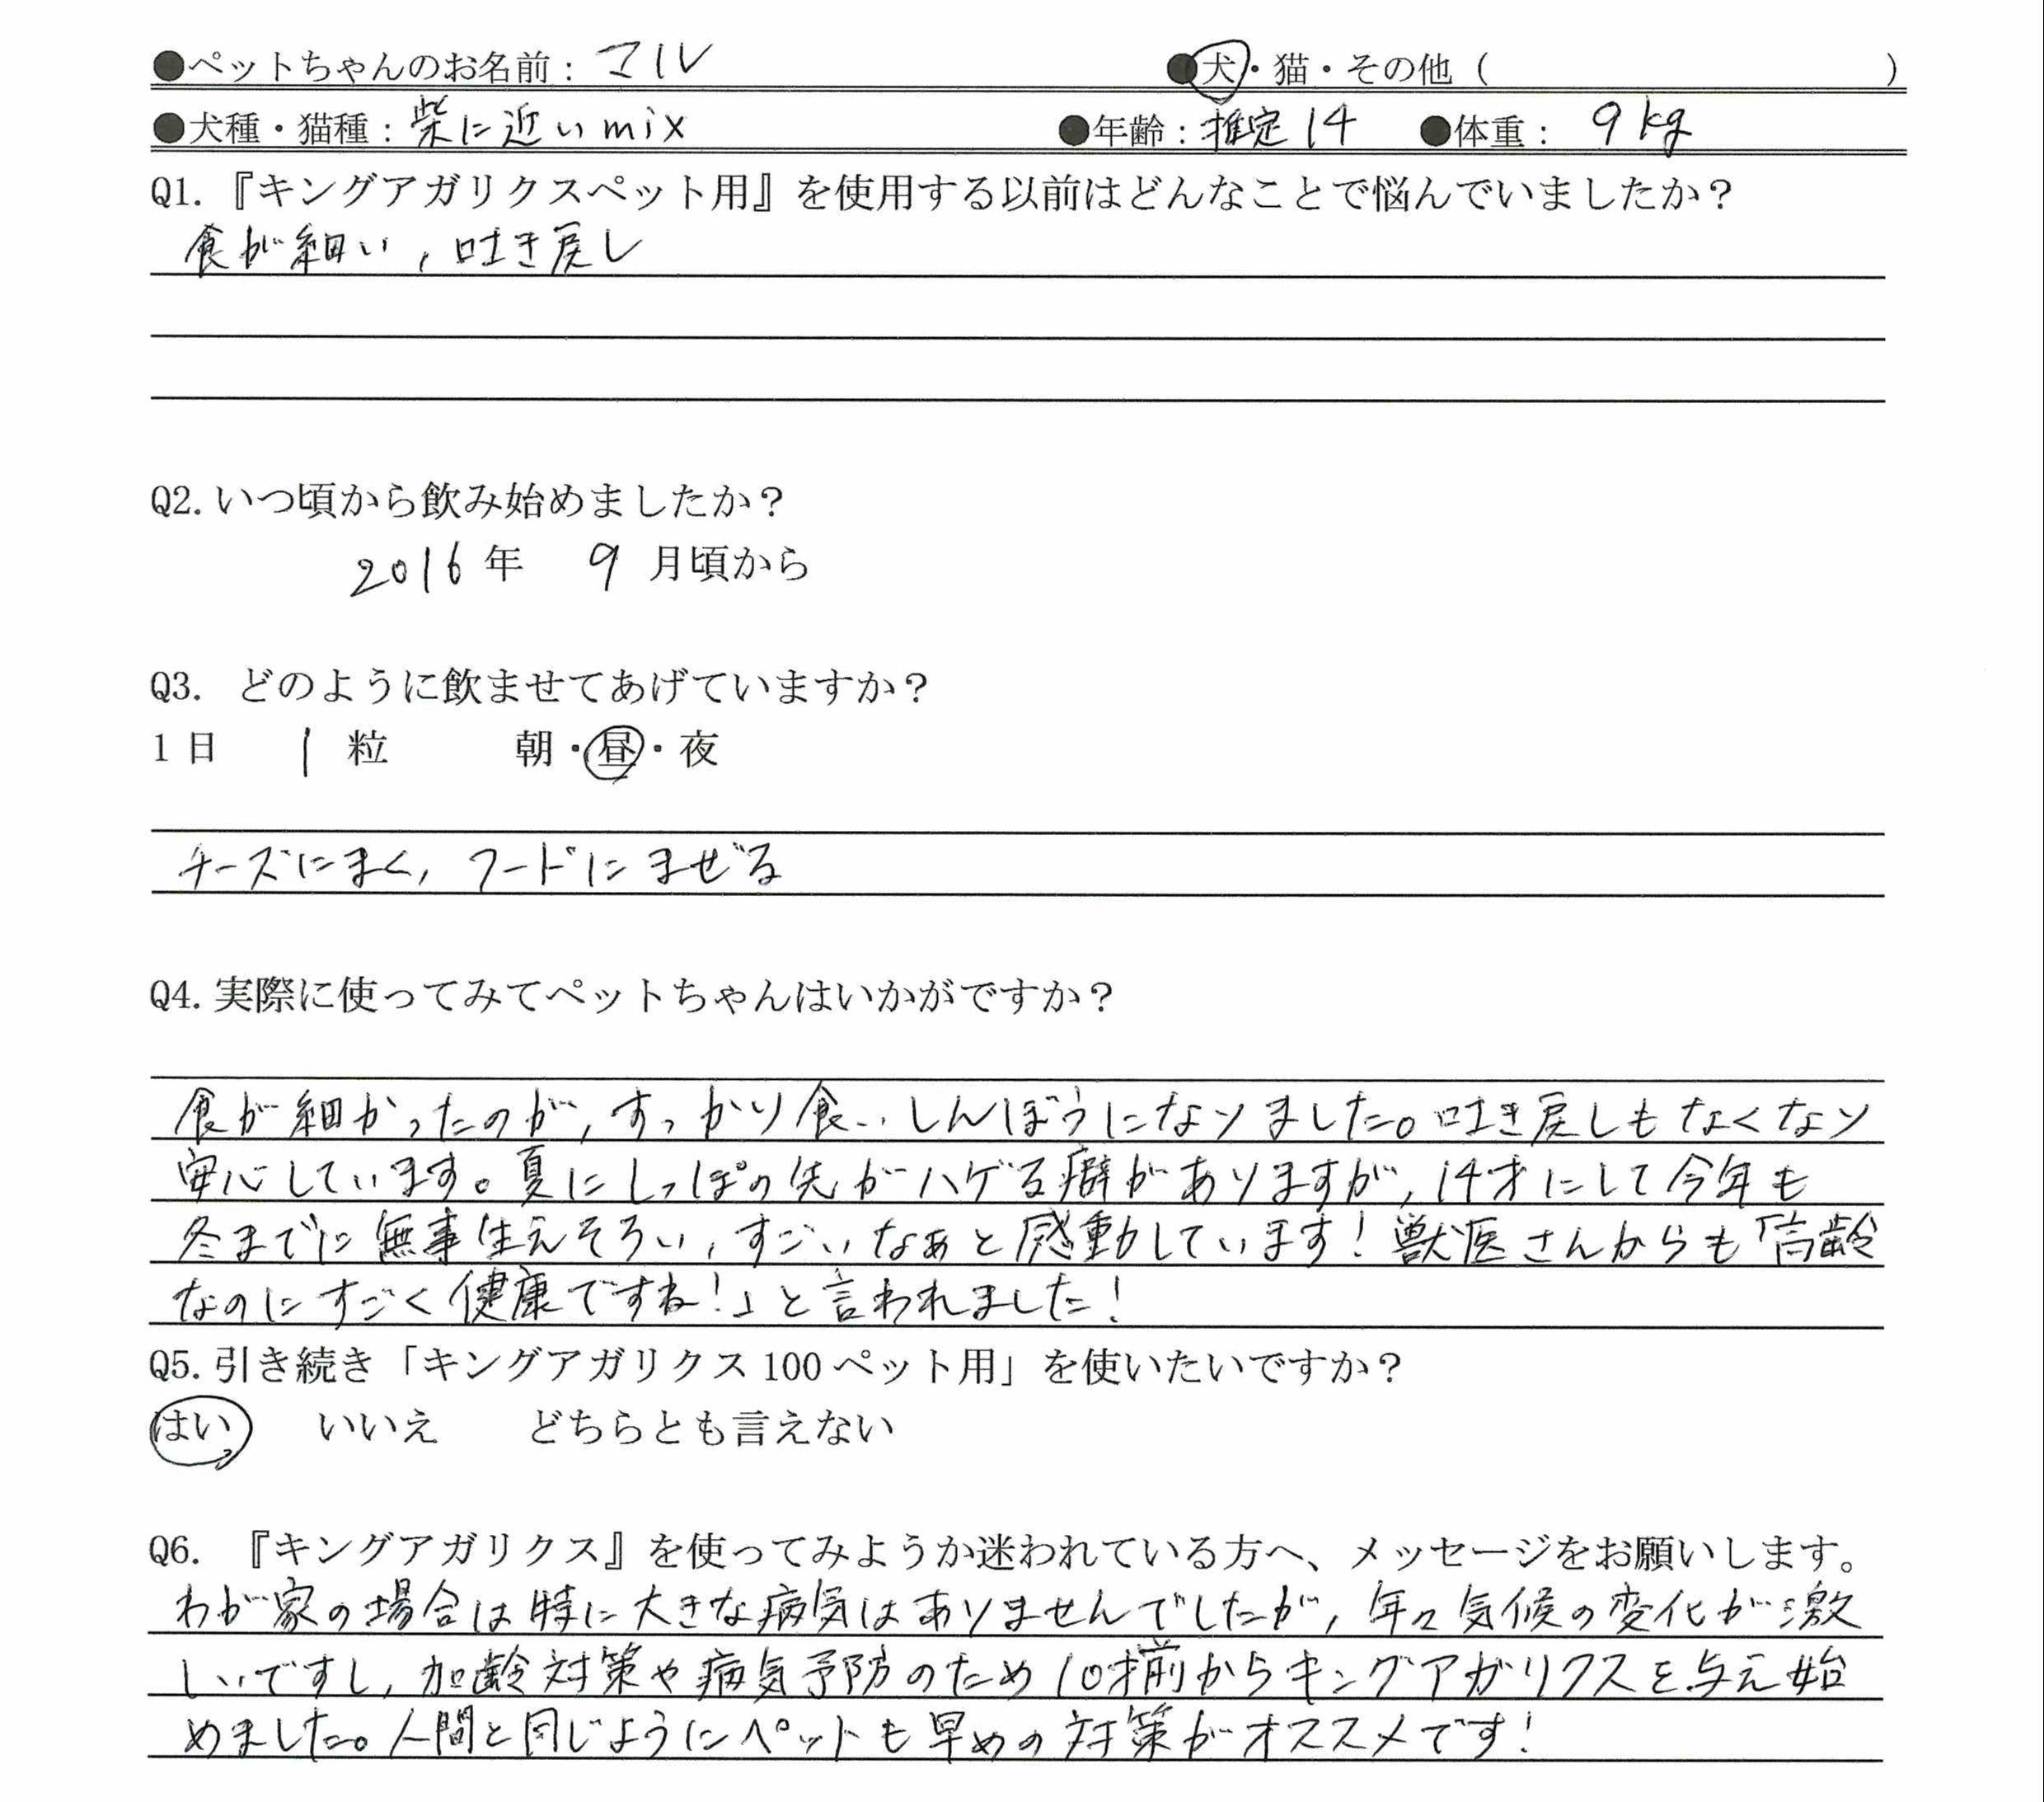 ●ペットちゃんのお名前：マル　●犬・猫・その他（　）
●犬種・猫種：柴に近いmix　●年齢：推定14　●体重：9kg
Q1.『キングアガリクスペット用』を使用する以前はどんなことで悩んでいましたか？
食が細い，吐き戻し
Q2.いつ頃から飲み始めましたか？
2016年　9月頃から
Q3. どのように飲ませてあげていますか？
1日　1粒　朝・昼・夜
チーズにまく，フードにまぜる
Q4.実際に使ってみてペットちゃんはいかがですか？
食が細かったのが，すっかり食いしんぼうになりました。吐き戻しもなくなり
安心しています。夏にしっぽの先がハゲる癖がありますが，14才にして今年も
冬までに無事生えそろい，すごいなぁと感動しています！獣医さんからも「高齢
なのにすごく健康ですね！」と言われました！
Q5.引き続き「キングアガリクス100ペット用」を使いたいですか？
はい　いいえ　どちらとも言えない
Q6. 『キングアガリクス』を使ってみようか迷われている方へ、メッセージをお願いします。
わが家の場合は特に大きな病気はありませんでしたが，年々気候の変化が激
しいですし，加齢対策や病気予防のため10才前からキングアガリクスを与え始
めました。人間と同じようにペットも早めの対策がオススメです！